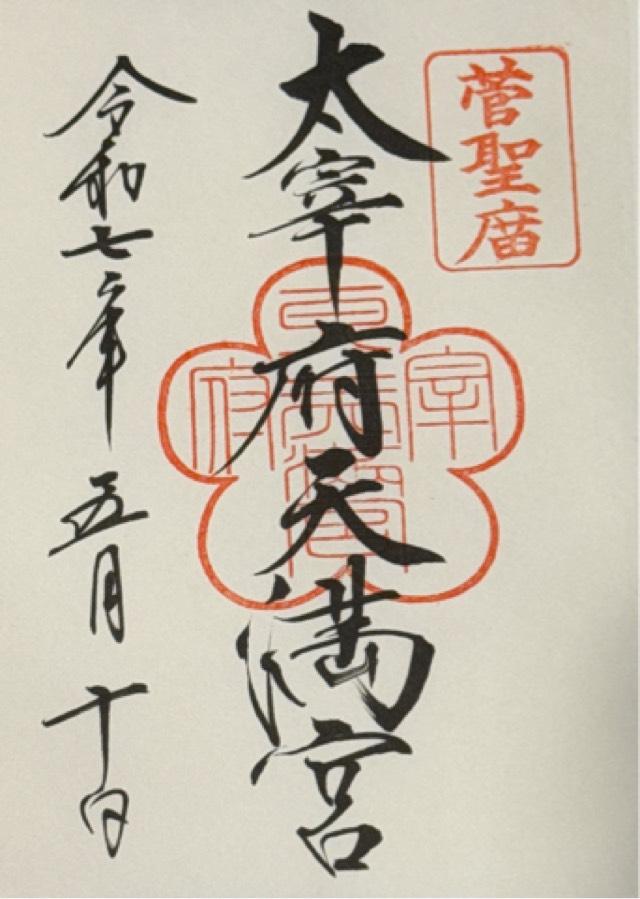 菅聖庿
太宰府天満宮
令和七年五月十日